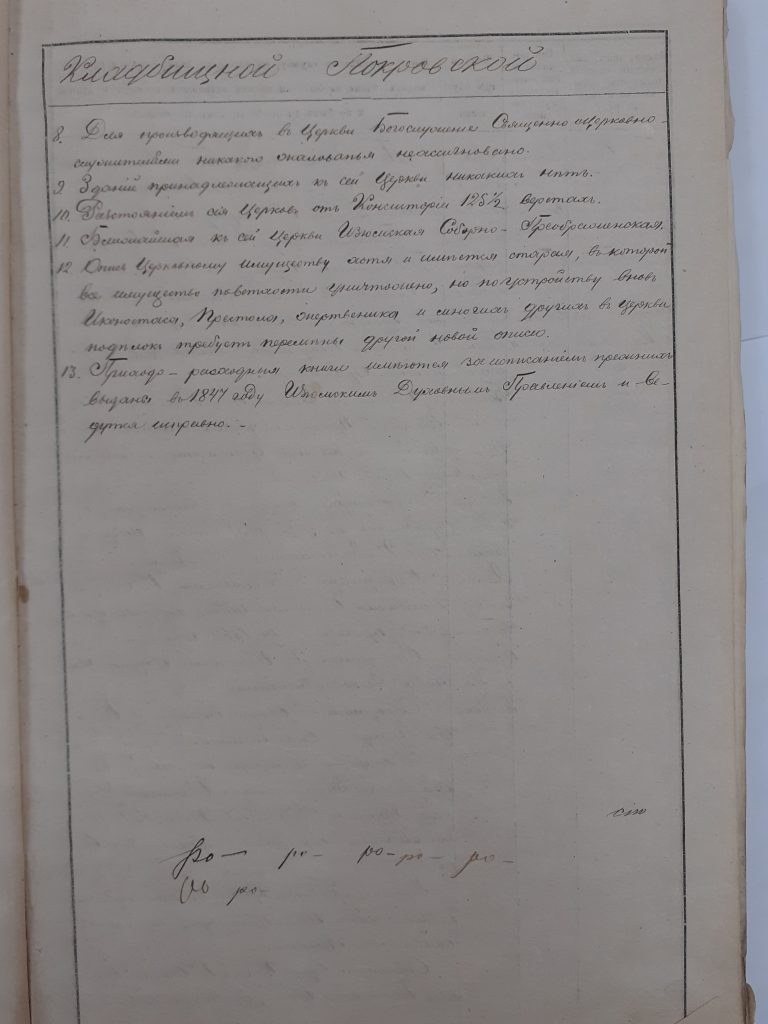 Кладбищной Покровской
8. Для производящихъ въ Церкви Богослуженіе Священно-церковно-
служителями никакого жалованья неассигновано.
9. Зданій принадлежащихъ къ сей Церкви никакихъ нѣтъ.
10. Разстояніемъ сія Церковь отъ Консисторіи 125 1/2 верстахъ.
11. Ближайшая къ сей Церкви Изюмская Соборно-Преображенская.
12. Опись Церковному имуществу хотя и имѣется старая, въ которой
все имущество поветхости уничтожено, но по устройству вновь
Иконостаса, Престола, жертвеника и многихъ другихъ въ Церкви
требуетъ перемены другой новой описи.
13. Приходо-расходныя книги имѣются за исписаніемъ прежнихъ
выданы въ 1847 году Изюмскимъ Духовнымъ Правленіемъ и ве-
дутся исправно.-
сію
ро- ро- ро- ро-
ро-